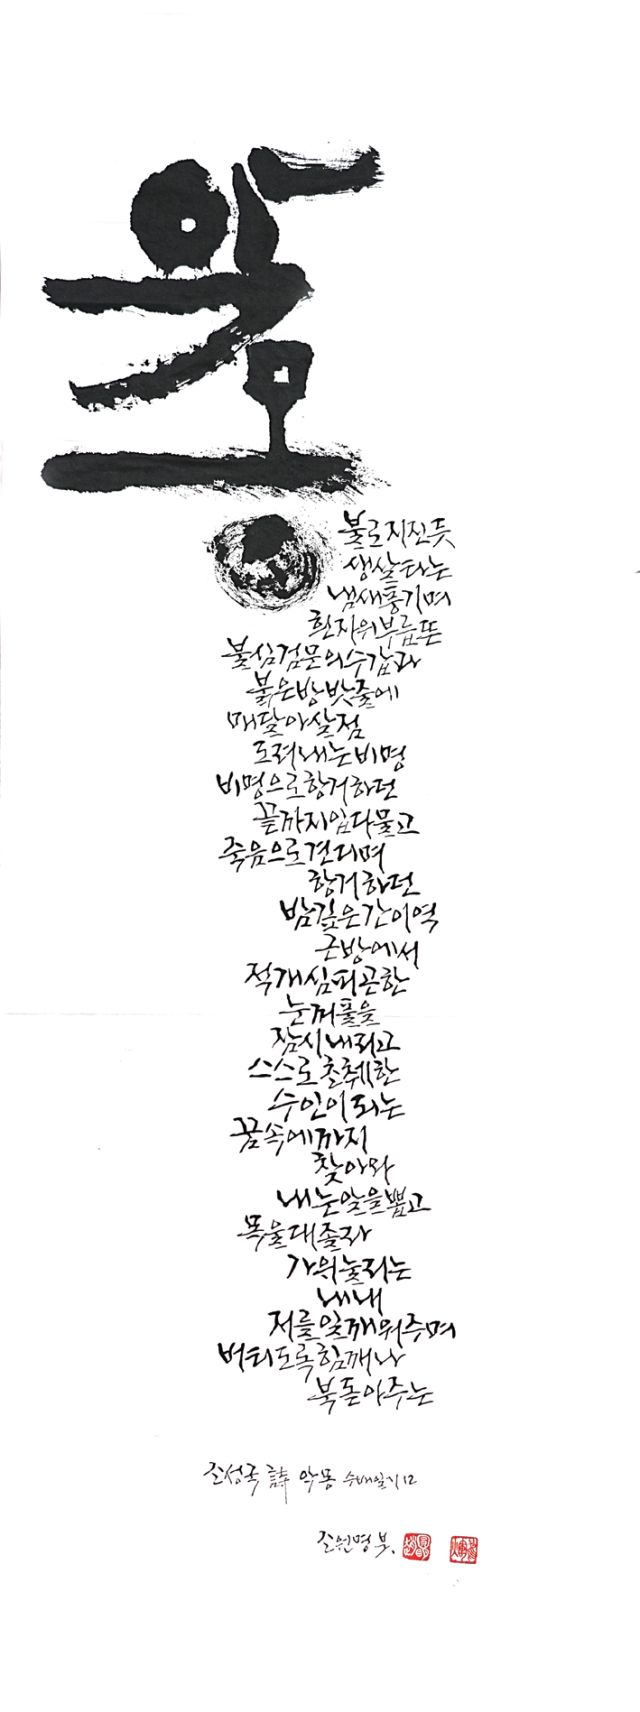 악몽
불로지진듯
생살타는
냄새풍기며
흰자위부릅뜬
불심검문의수갑과
붉은방밧줄에
매달아살점
도려내는비명
비명으로항거하던
끝까지입다물고
죽음으로견디며
항거하던
밤깊은간이역
근방에서
적개심피곤한
눈꺼풀을
잠시내리고
스스로초췌한
수인이되는
꿈속에까지
찾아와
내눈알을뽑고
목울대졸라
가위눌리는
내내
저를일깨워주며
버티도록힘깨나
북돋아주는
조성국 詩 악몽 수배일기12
조원명 붓.